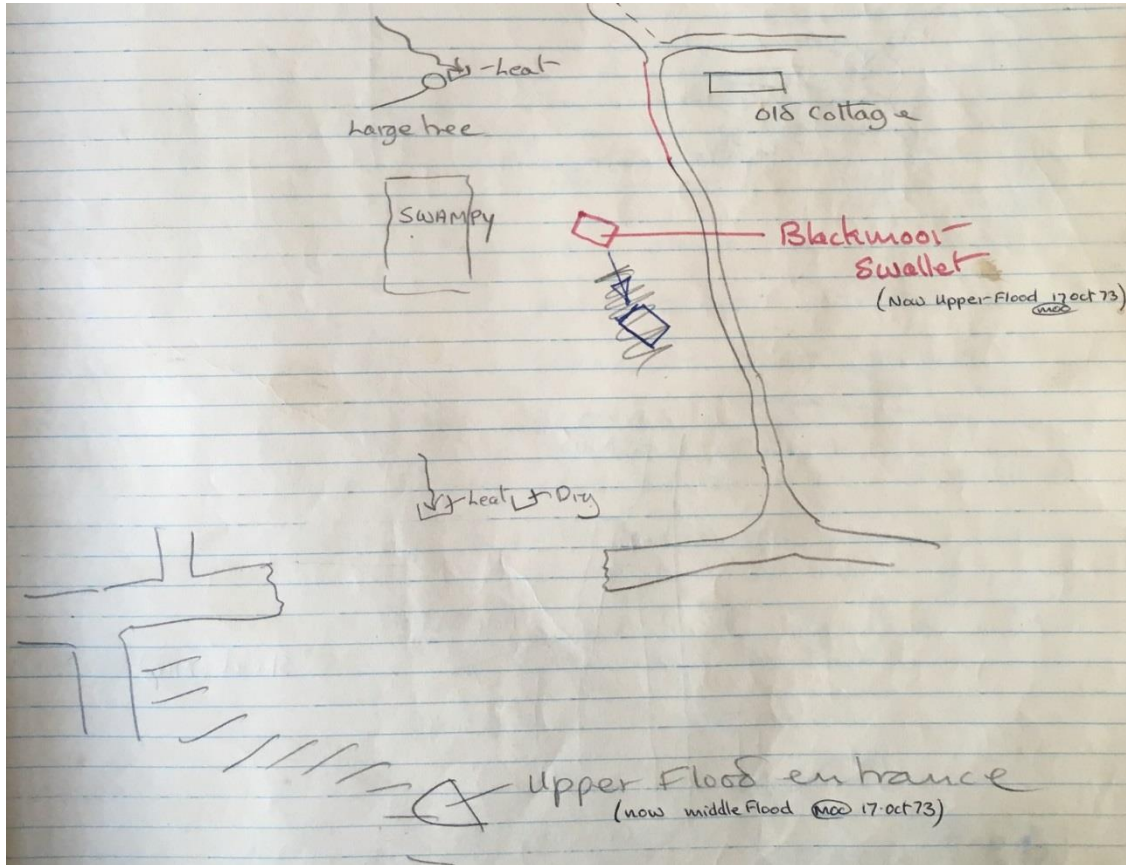 Leat
Large tree
Old Cottage
SWAMPY
Blackmoor
Swallet
(Now Upper-Flood 17 oct 73)
MCG
Leat
Dig
Upper Flood entrance
(now middle Flood MCG 17.oct 73)